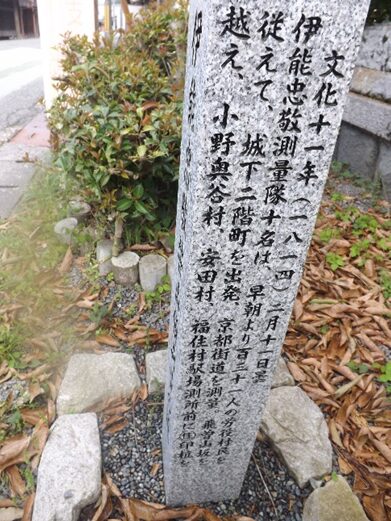 文化十一年(一八一四)二月十一日
伊能忠敬測量隊十名は、早朝より百三十一人の労役村民を
従えて、城下二階町を出発 京都街道を測量 飛曽山坂を
越え、小野奥谷村 安田村 福住村駅場測所前に
印杭を